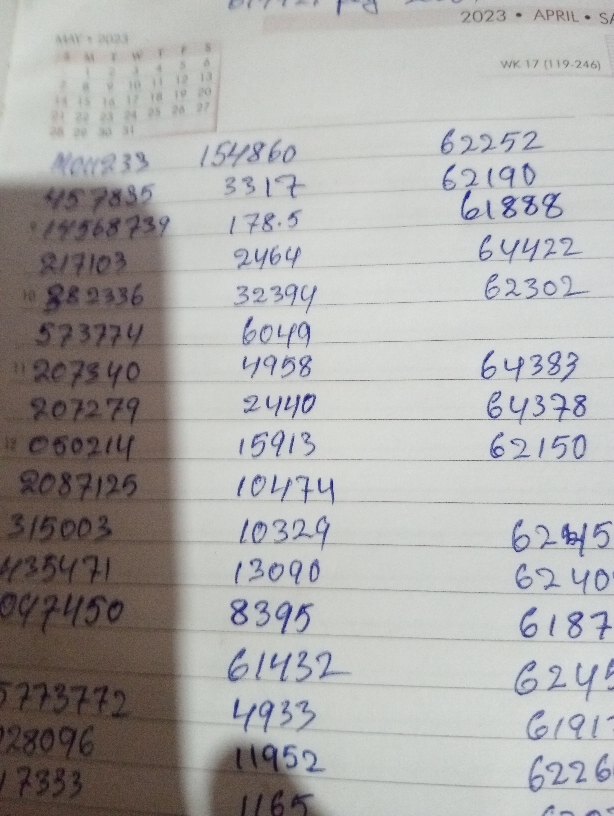 2023 • APRIL • SA
MAY • 2023
S M T W T F S
1 2 3 4 5 6
7 8 9 10 11 12 13
14 15 16 17 18 19 20
21 22 23 24 25 26 27
28 29 30 31
WK 17 (119-246)
154860 62252
457835 3317 62190
14568739 178.5 61888
217103 2464 64422
10 882336 32394 62302
573774 6049
11 207340 4958 64383
207279 2440 64378
12 050214 15913 62150
2087125 10474
315003 10329
435471 13090 6240
047450 8395 6187
61432 6245
5773772 4933 6191
28096 11952 6226
17333 1165